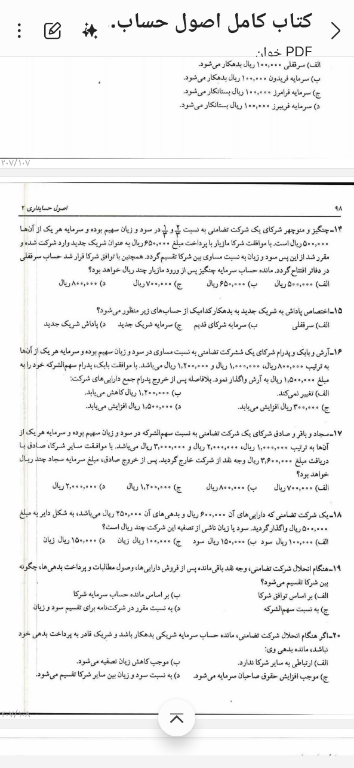 کتاب کامل اصول حساب.
PDF خوان
الف) سرقفلی ۱۰۰,۰۰۰ ریال بدهکار می‌شود.
ب) سرمایه فریدون ۱۰۰,۰۰۰ ریال بدهکار می‌شود.
ج) سرمایه فرامرز ۱۰۰,۰۰۰ ریال بستانکار می‌شود.
د) سرمایه فریبرز ۱۰۰,۰۰۰ ریال بستانکار می‌شود.
۲۰۷/۱۰۷
۹۸ اصول حسابداری ۲
۱۴-چنگیز و منوچهر شرکای یک شرکت تضامنی به نسبت و در سود و زیان سهیم بوده و سرمایه هر یک از آن‌ها
۵۰۰,۰۰۰ ریال است. با موافقت شرکا مازیار با پرداخت مبلغ ۶۵۰,۰۰۰ ریال به عنوان شریک جدید وارد شرکت شده و
مقرر شد از این پس سود و زیان به نسبت مساوی بین شرکا تقسیم گردد. همچنین با توافق شرکا قرار شد حساب سرقفلی
در دفاتر افتتاح گردد. مانده حساب سرمایه چنگیز پس از ورود مازیار چند ریال خواهد بود؟
الف) ۵۰۰,۰۰۰ ریال ب) ۶۵۰,۰۰۰ ریال ج) ۷۰۰,۰۰۰ ریال د) ۸۰۰,۰۰۰ ریال
۱۵-اختصاص پاداش به شریک جدید به بدهکار کدامیک از حساب‌های زیر منظور می‌شود؟
الف) سرقفلی ب) سرمایه شرکای قدیم ج) سرمایه شریک جدید د) پاداش شریک جدید
۱۶-آرش و بابک و پدرام شرکای یک شرکت تضامنی به نسبت مساوی در سود و زیان سهیم بوده و سرمایه هر یک از آن‌ها
به ترتیب ۸۰۰,۰۰۰ ریال، ۱,۰۰۰,۰۰۰ ریال و ۱,۲۰۰,۰۰۰ ریال می‌باشد. با موافقت بابک، پدرام سهم‌الشرکه خود را به
مبلغ ۱,۵۰۰,۰۰۰ ریال به آرش واگذار نمود. بلافاصله پس از خروج پدرام جمع دارایی‌های شرکت:
الف) تغییر نمی‌کند. ب) ۱,۲۰۰,۰۰۰ ریال کاهش می‌یابد.
ج) ۳۰۰,۰۰۰ ریال افزایش می‌یابد. د) ۱,۵۰۰,۰۰۰ ریال افزایش می‌یابد.
۱۷-سجاد و باقر و صادق شرکای یک شرکت تضامنی به نسبت سهم‌الشرکه در سود و زیان سهیم بوده و سرمایه هر یک از
آن‌ها به ترتیب ۱,۰۰۰,۰۰۰ ریال، ۲,۰۰۰,۰۰۰ ریال و ۳,۰۰۰,۰۰۰ ریال می‌باشد. با موافقت سایر شرکا، صادق با
دریافت مبلغ ۳,۶۰۰,۰۰۰ ریال وجه نقد از شرکت خارج گردید. پس از خروج صادق، مبلغ سرمایه سجاد چند ریال
خواهد بود؟
الف) ۷۰۰,۰۰۰ ریال ب) ۸۰۰,۰۰۰ ریال ج) ۱,۲۰۰,۰۰۰ ریال د) ۲,۰۰۰,۰۰۰ ریال
۱۸-یک شرکت تضامنی که دارایی‌های آن ۶۰۰,۰۰۰ ریال و بدهی‌های آن ۲۵۰,۰۰۰ ریال می‌باشد، به شکل دایر به مبلغ
۵۰۰,۰۰۰ ریال واگذار گردید. سود یا زیان ناشی از تصفیه این شرکت چند ریال است؟
الف) ۱۰۰,۰۰۰ ریال سود ب) ۱۵۰,۰۰۰ ریال سود ج) ۱۰۰,۰۰۰ ریال زیان د) ۱۵۰,۰۰۰ ریال زیان
۱۹-هنگام انحلال شرکت تضامنی، وجه نقد باقی‌مانده پس از فروش دارایی‌ها، وصول مطالبات و پرداخت بدهی‌ها، چگونه
بین شرکا تقسیم می‌شود؟
الف) بر اساس توافق شرکا ب) بر اساس مانده حساب سرمایه شرکا
ج) به نسبت سهم‌الشرکه د) به نسبت مقرر در شرکت‌نامه برای تقسیم سود و زیان
۲۰-اگر هنگام انحلال شرکت تضامنی، مانده حساب سرمایه شریکی بدهکار باشد و شریک قادر به پرداخت بدهی خود
نباشد، مانده بدهی وی:
الف) ارتباطی به سایر شرکا ندارد. ب) موجب کاهش زیان تصفیه می‌شود.
ج) موجب افزایش حقوق صاحبان سرمایه می‌شود. د) به نسبت سود و زیان بین سایر شرکا تقسیم می‌شود.